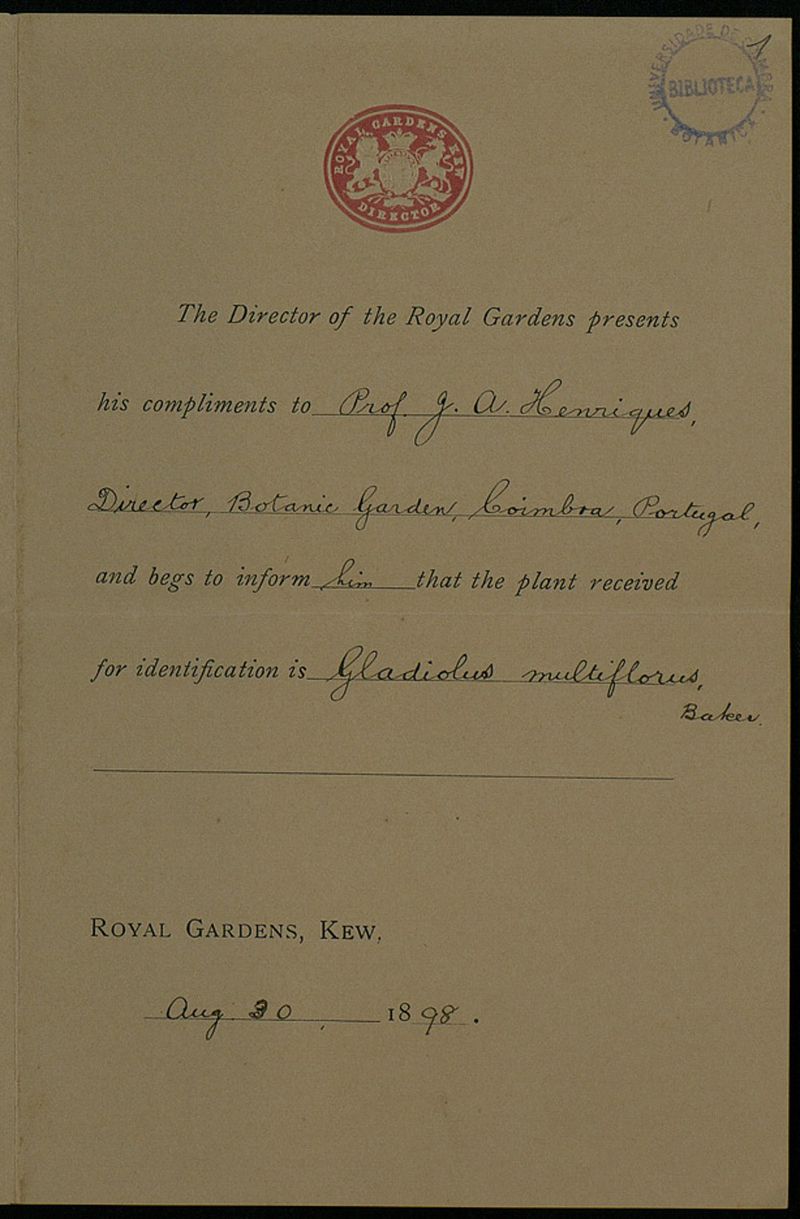 1
UNIVERSIDADE DE COIMBRA
BIBLIOTECA
BOTANICA
ROYAL GARDENS, KEW
DIRECTOR
The Director of the Royal Gardens presents
his compliments to Prof. J. A. Henriques,
Director, Botanic Garden, Coimbra, Portugal,
and begs to inform him that the plant received
for identification is Gladiolus multiflorus,
Baker.
ROYAL GARDENS, KEW,
Aug 30 1898.